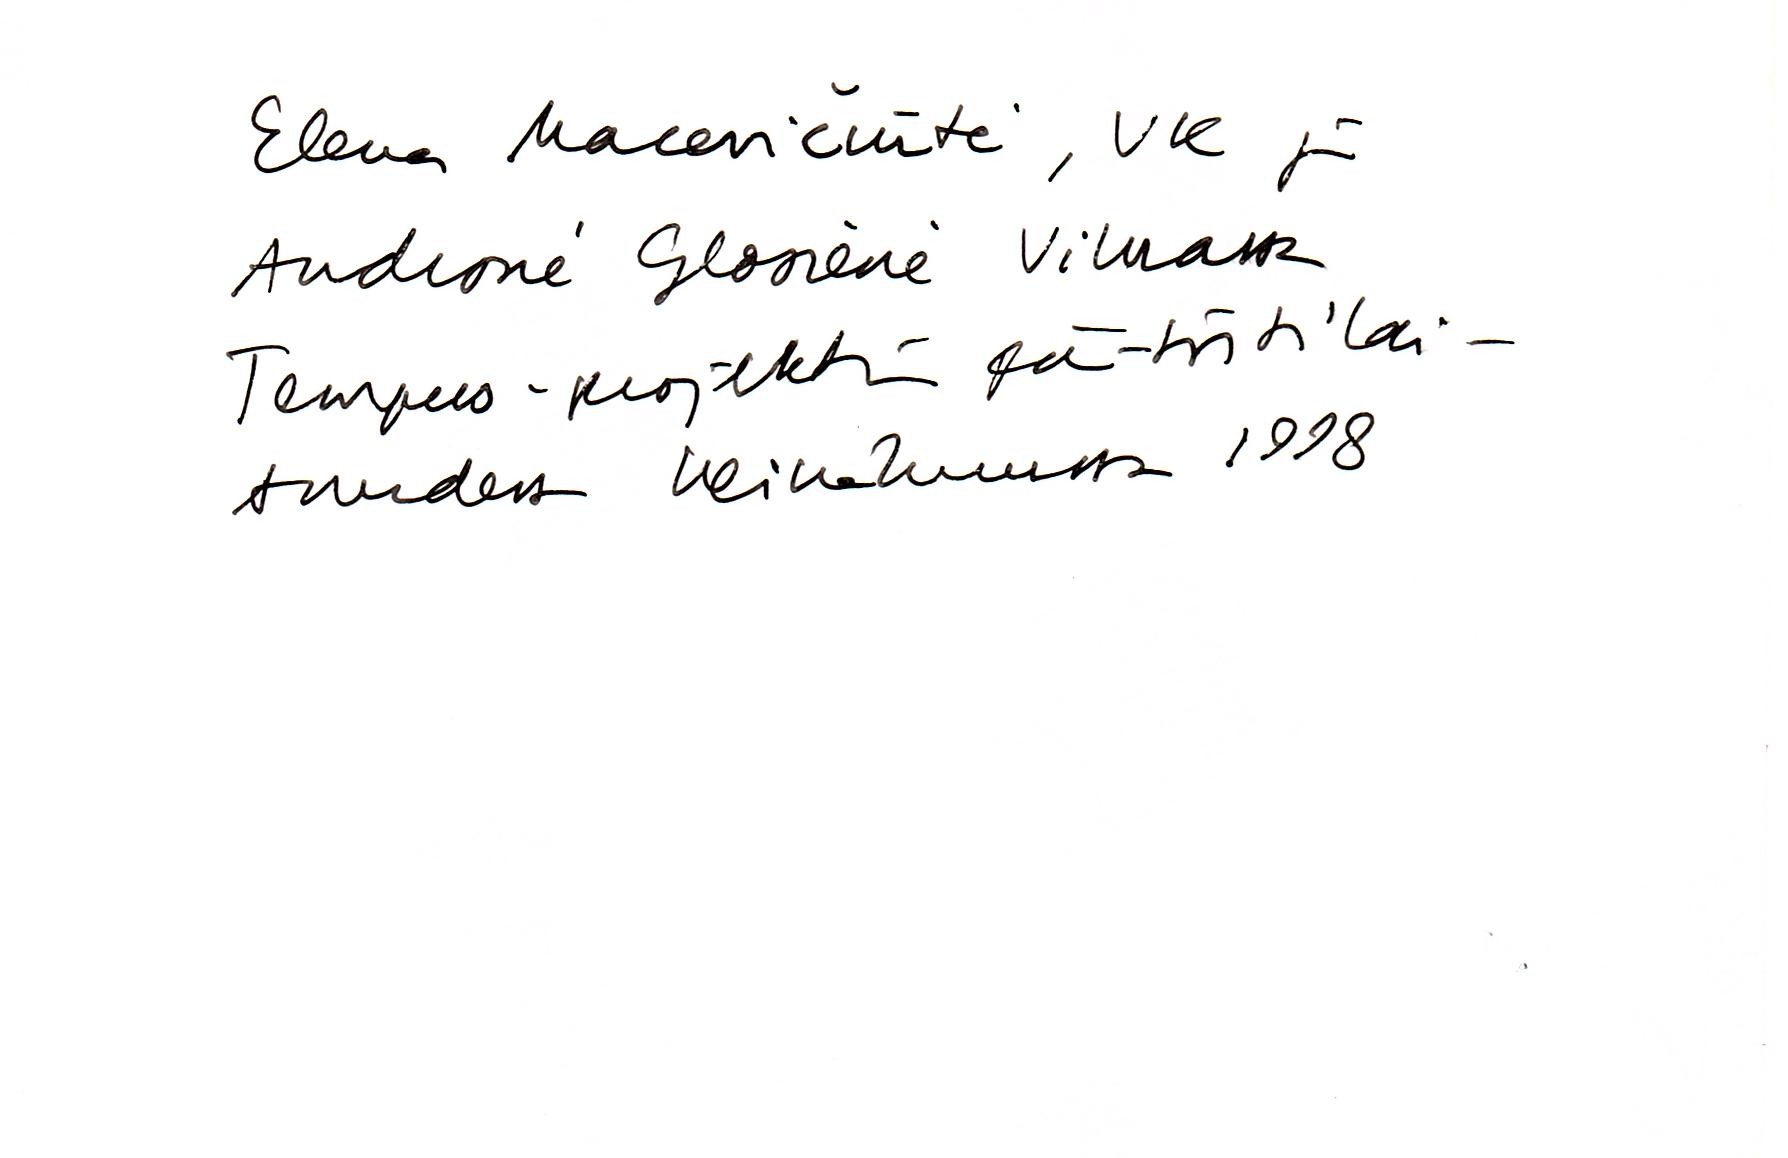 Elena Macevičiūtė, VK ja
Audronė Glosienė Vilnassa
Tempus-projektin päätöstilai-
suudessa heinäkuussa 1998